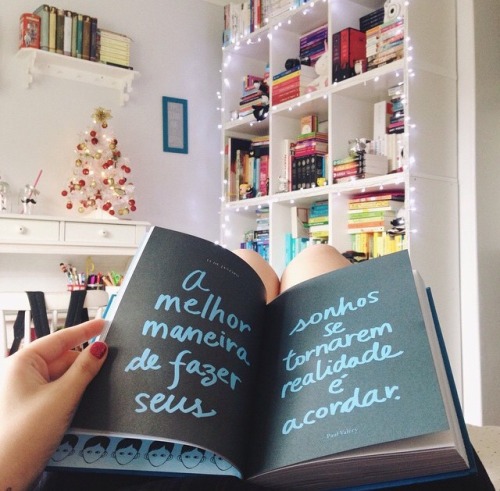 a
melhor
maneira
de fazer
seus
sonhos
se
tornarem
realidade
é
acordar.
Paul Valéry